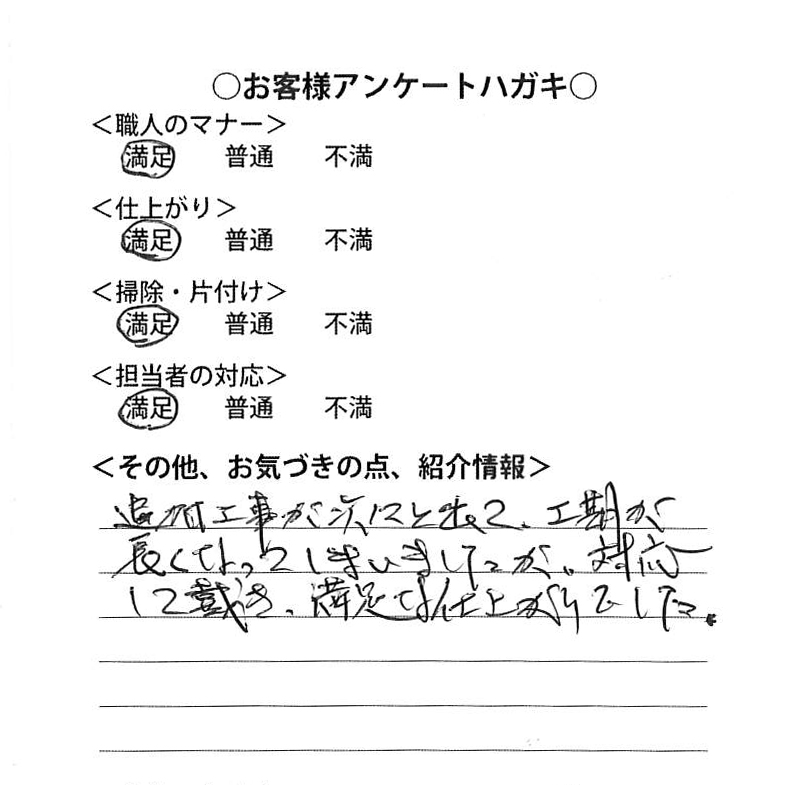 ○お客様アンケートハガキ○
＜職人のマナー＞
満足 普通 不満
＜仕上がり＞
満足 普通 不満
＜掃除・片付け＞
満足 普通 不満
＜担当者の対応＞
満足 普通 不満
＜その他、お気づきの点、紹介情報＞
追加工事が次々と出て、工期が
長くなってしまいましたが、対応
して戴き、満足な仕上がりでした。